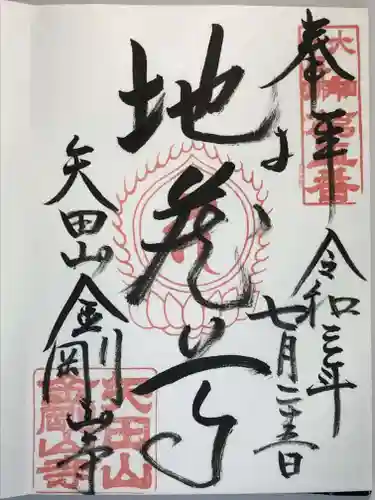 奉拝
大和
番
令和三年
七月二十三日
地蔵尊
矢田山
金剛山寺
矢田山
金剛山寺